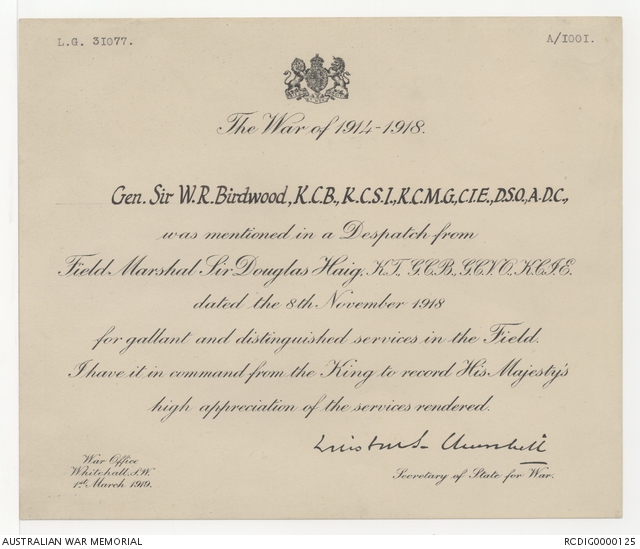 L.G. 31077.
A/1001.
The War of 1914-1918.
Gen. Sir W.R. Birdwood, K.C.B., K.C.S.I., K.C.M.G., C.I.E., D.S.O., A.D.C.,
was mentioned in a Despatch from
Field Marshal Sir Douglas Haig, K.T. G.C.B. G.C.V.O. K.C.I.E.
dated the 8th November 1918
for gallant and distinguished services in the Field.
I have it in command from the King to record His Majesty's
high appreciation of the services rendered.
Winston S. Churchill
War Office
Whitehall, S.W.
1st March 1919.
Secretary of State for War.
AUSTRALIAN WAR MEMORIAL
RCDIG0000125